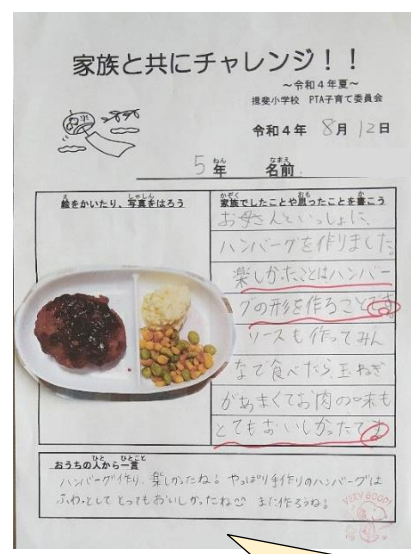 家族と共にチャレンジ！！
～令和４年夏～
揖斐小学校　PTA子育て委員会
令和４年　8月12日
5年　名前
絵をかいたり、写真をはろう
家族でしたことや思ったことを書こう
お母さんといっしょに、
ハンバーグを作りました。
楽しかったことはハンバー
グの形を作ることです。
ソースも作ってみん
なで食べたら、玉ねぎ
があまくてお肉の味も
とてもおいしかったです。
おうちの人から一言
ハンバーグ作り、楽しかったね! やっぱり手作りのハンバーグは
ふわっとして とってもおいしかったね☺ また作ろうね!
VERY GOOD!